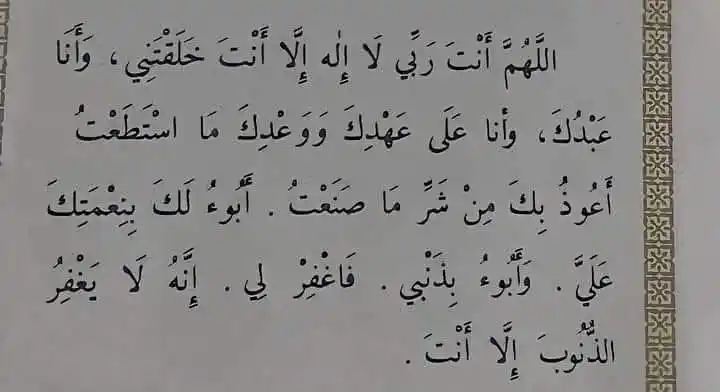 اللَّهُمَّ أَنْتَ رَبِّي لَا إِلٰه إِلَّا أَنْتَ خَلَقْتَنِي، وَأَنَا
عَبْدُكَ، وأنا عَلَى عَهْدِكَ وَوَعْدِكَ مَا اسْتَطَعْتُ
أَعُوذُ بِكَ مِنْ شَرِّ مَا صَنَعْتُ . أَبُوءُ لَكَ بِنِعْمَتِكَ
عَلَيَّ . وَأَبُوءُ بِذَنْبِي . فَاغْفِرْ لِي . إِنَّهُ لَا يَغْفِرُ
الذُّنُوبَ إِلَّا أَنْتَ .